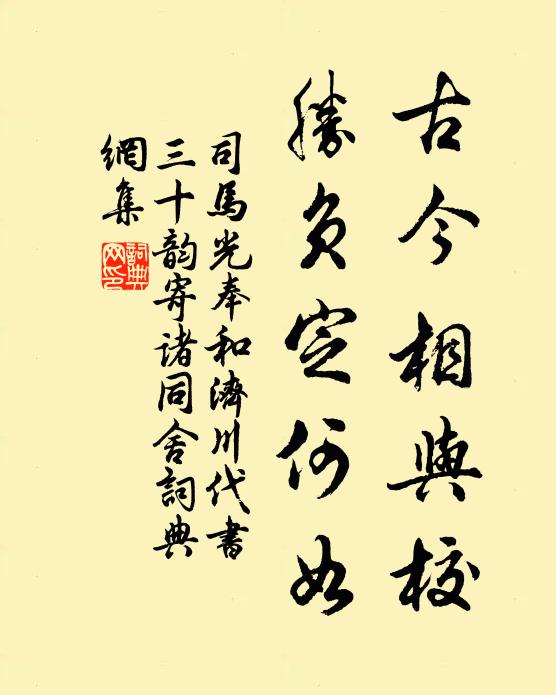 古今相與校
勝負定何如
司馬光奉和濟川代書
三十韵寄诸同舍詞典
網集
詞典網印